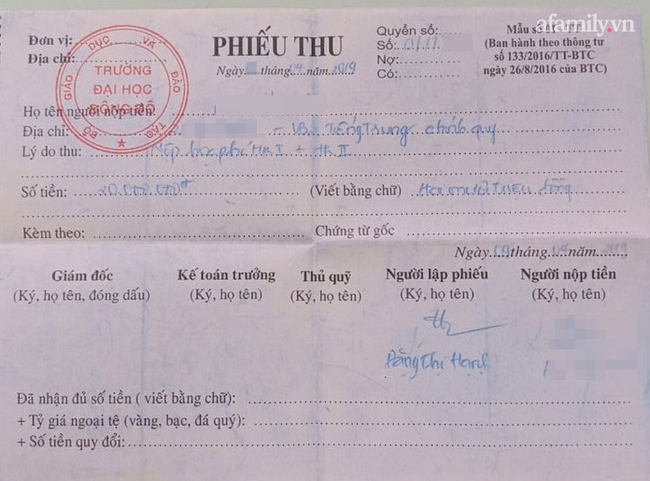 afamily.vn
Đơn vị:
Địa chỉ:
BỘ GIÁO DỤC VÀ ĐÀO TẠO
TRƯỜNG
ĐẠI HỌC
ĐÔNG ĐÔ
PHIẾU THU
Ngày tháng 09 năm 2019
Quyển số:
Số:
Nợ:
Có:
(Ban hành theo thông tư
số 133/2016/TT-BTC
ngày 26/8/2016 của BTC)
Họ tên người nộp tiền:
Địa chỉ: Tiếng Trung chính quy
Lý do thu: Nộp học phí HK I + HK II
Số tiền: 20.000.000đ (Viết bằng chữ) Hai mươi triệu đồng
Kèm theo: Chứng từ gốc
Ngày 09 tháng 09 năm 2019
Giám đốc Kế toán trưởng Thủ quỹ Người lập phiếu Người nộp tiền
(Ký, họ tên, đóng dấu) (Ký, họ tên) (Ký, họ tên) (Ký, họ tên) (Ký, họ tên)
Đặng Thị Hạnh
Đã nhận đủ số tiền ( viết bằng chữ):
+ Tỷ giá ngoại tệ (vàng, bạc, đá quý):
+ Số tiền quy đổi: